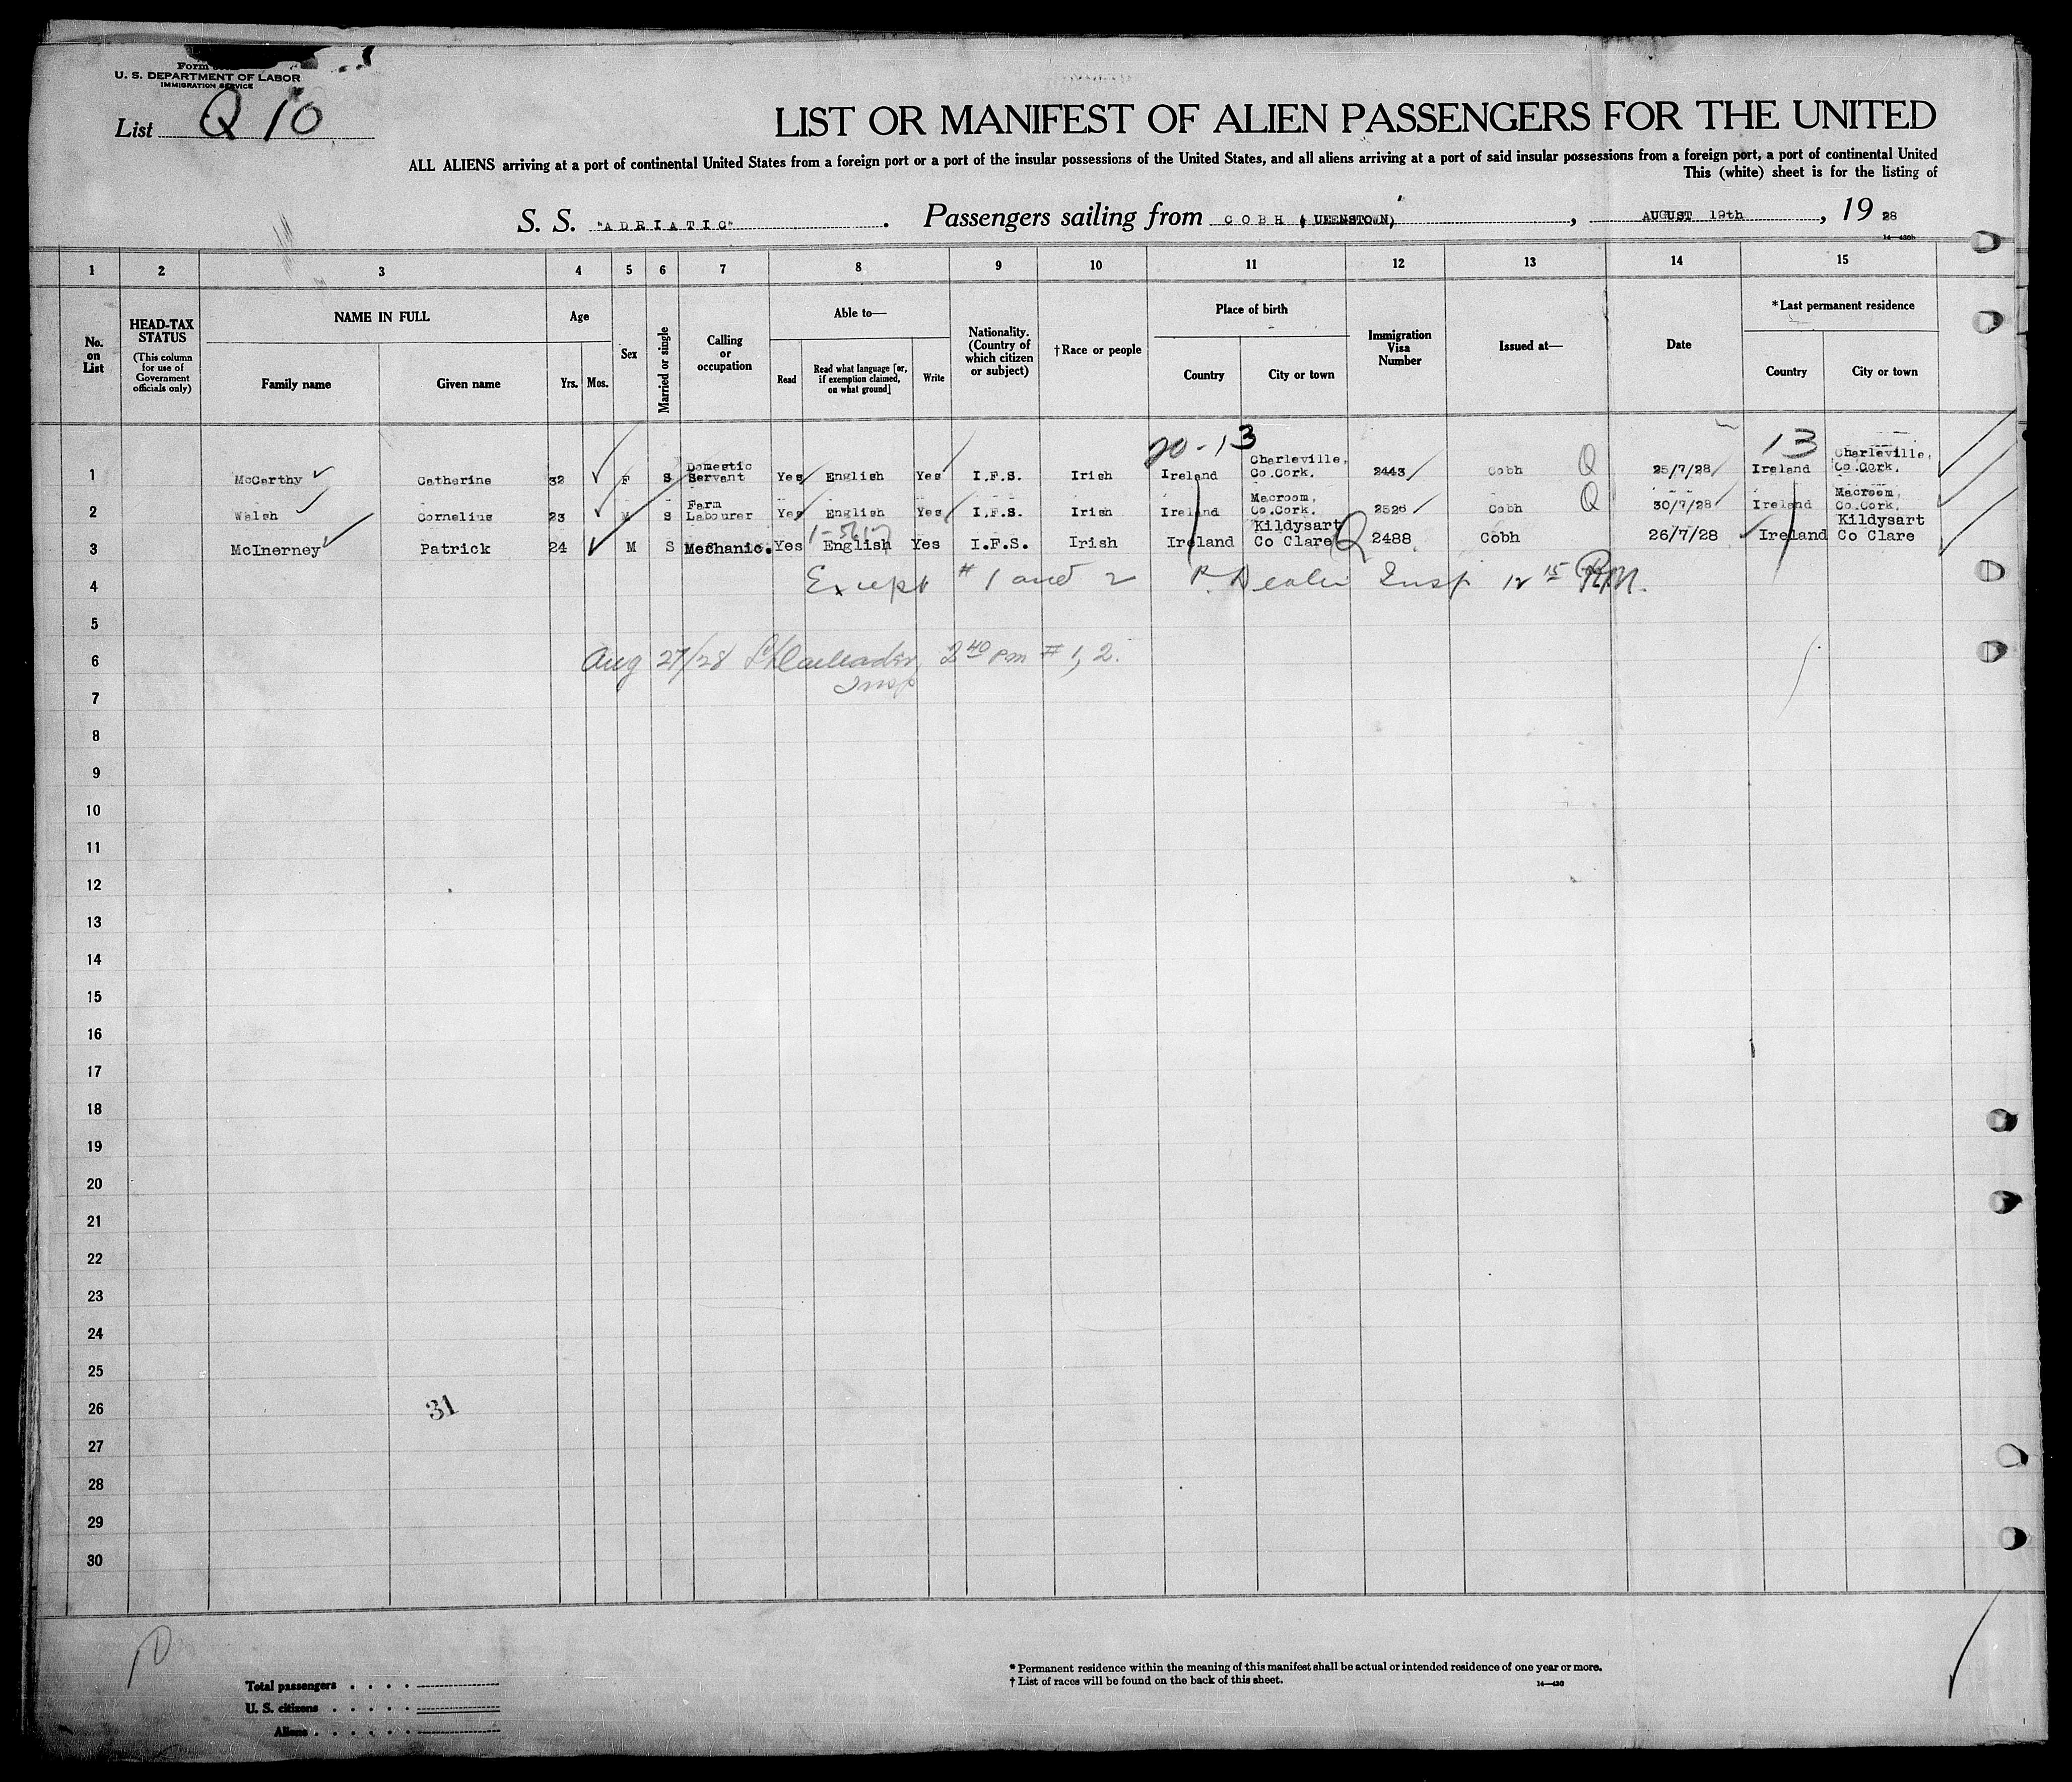 Form
U. S. DEPARTMENT OF LABOR
IMMIGRATION SERVICE
List Q 10
LIST OR MANIFEST OF ALIEN PASSENGERS FOR THE UNITED
ALL ALIENS arriving at a port of continental United States from a foreign port or a port of the insular possessions of the United States, and all aliens arriving at a port of said insular possessions from a foreign port, a port of continental United
This (white) sheet is for the listing of
S. S. "ADRIATIC". Passengers sailing from COBH (UEENSTOWN), AUGUST 19th, 1928
14—430b
1 2 3 4 5 6 7 8 9 10 11 12 13 14 15
No. on List
HEAD-TAX STATUS
(This column for use of Government officials only)
NAME IN FULL
Family name Given name
Age
Yrs. Mos.
Sex
Married or single
Calling or occupation
Able to—
Read
Read what language [or, if exemption claimed, on what ground]
Write
Nationality. (Country of which citizen or subject)
†Race or people
Place of birth
Country City or town
Immigration Visa Number
Issued at—
Date
*Last permanent residence
Country City or town
20-13 13
1 McCarthy Catherine 32 F S Domestic Servant Yes English Yes I.F.S. Irish Ireland Charleville, Co.Cork. 2443 Cobh Q 25/7/28 Ireland Charleville, Co.Cork.
2 Walsh Cornelius 23 M S Farm Labourer Yes English Yes I.F.S. Irish Ireland Macroom, Co.Cork. 2526 Cobh Q 30/7/28 Ireland Macroom, Co.Cork.
3 McInerney Patrick 24 M S Mechanic. Yes English Yes I.F.S. Irish Ireland Kildysart Co Clare Q 2488 Cobh 26/7/28 Ireland Kildysart Co Clare
4 Except #1 and 2 Insp 12 15 P.M.
5
6 Aug 27/28 2 40 pm # 1, 2.
Insp
7
8
9
10
11
12
13
14
15
16
17
18
19
20
21
22
23
24
25
26 31
27
28
29
30
* Permanent residence within the meaning of this manifest shall be actual or intended residence of one year or more.
† List of races will be found on the back of this sheet.
14—430
Total passengers
U. S. citizens
Aliens